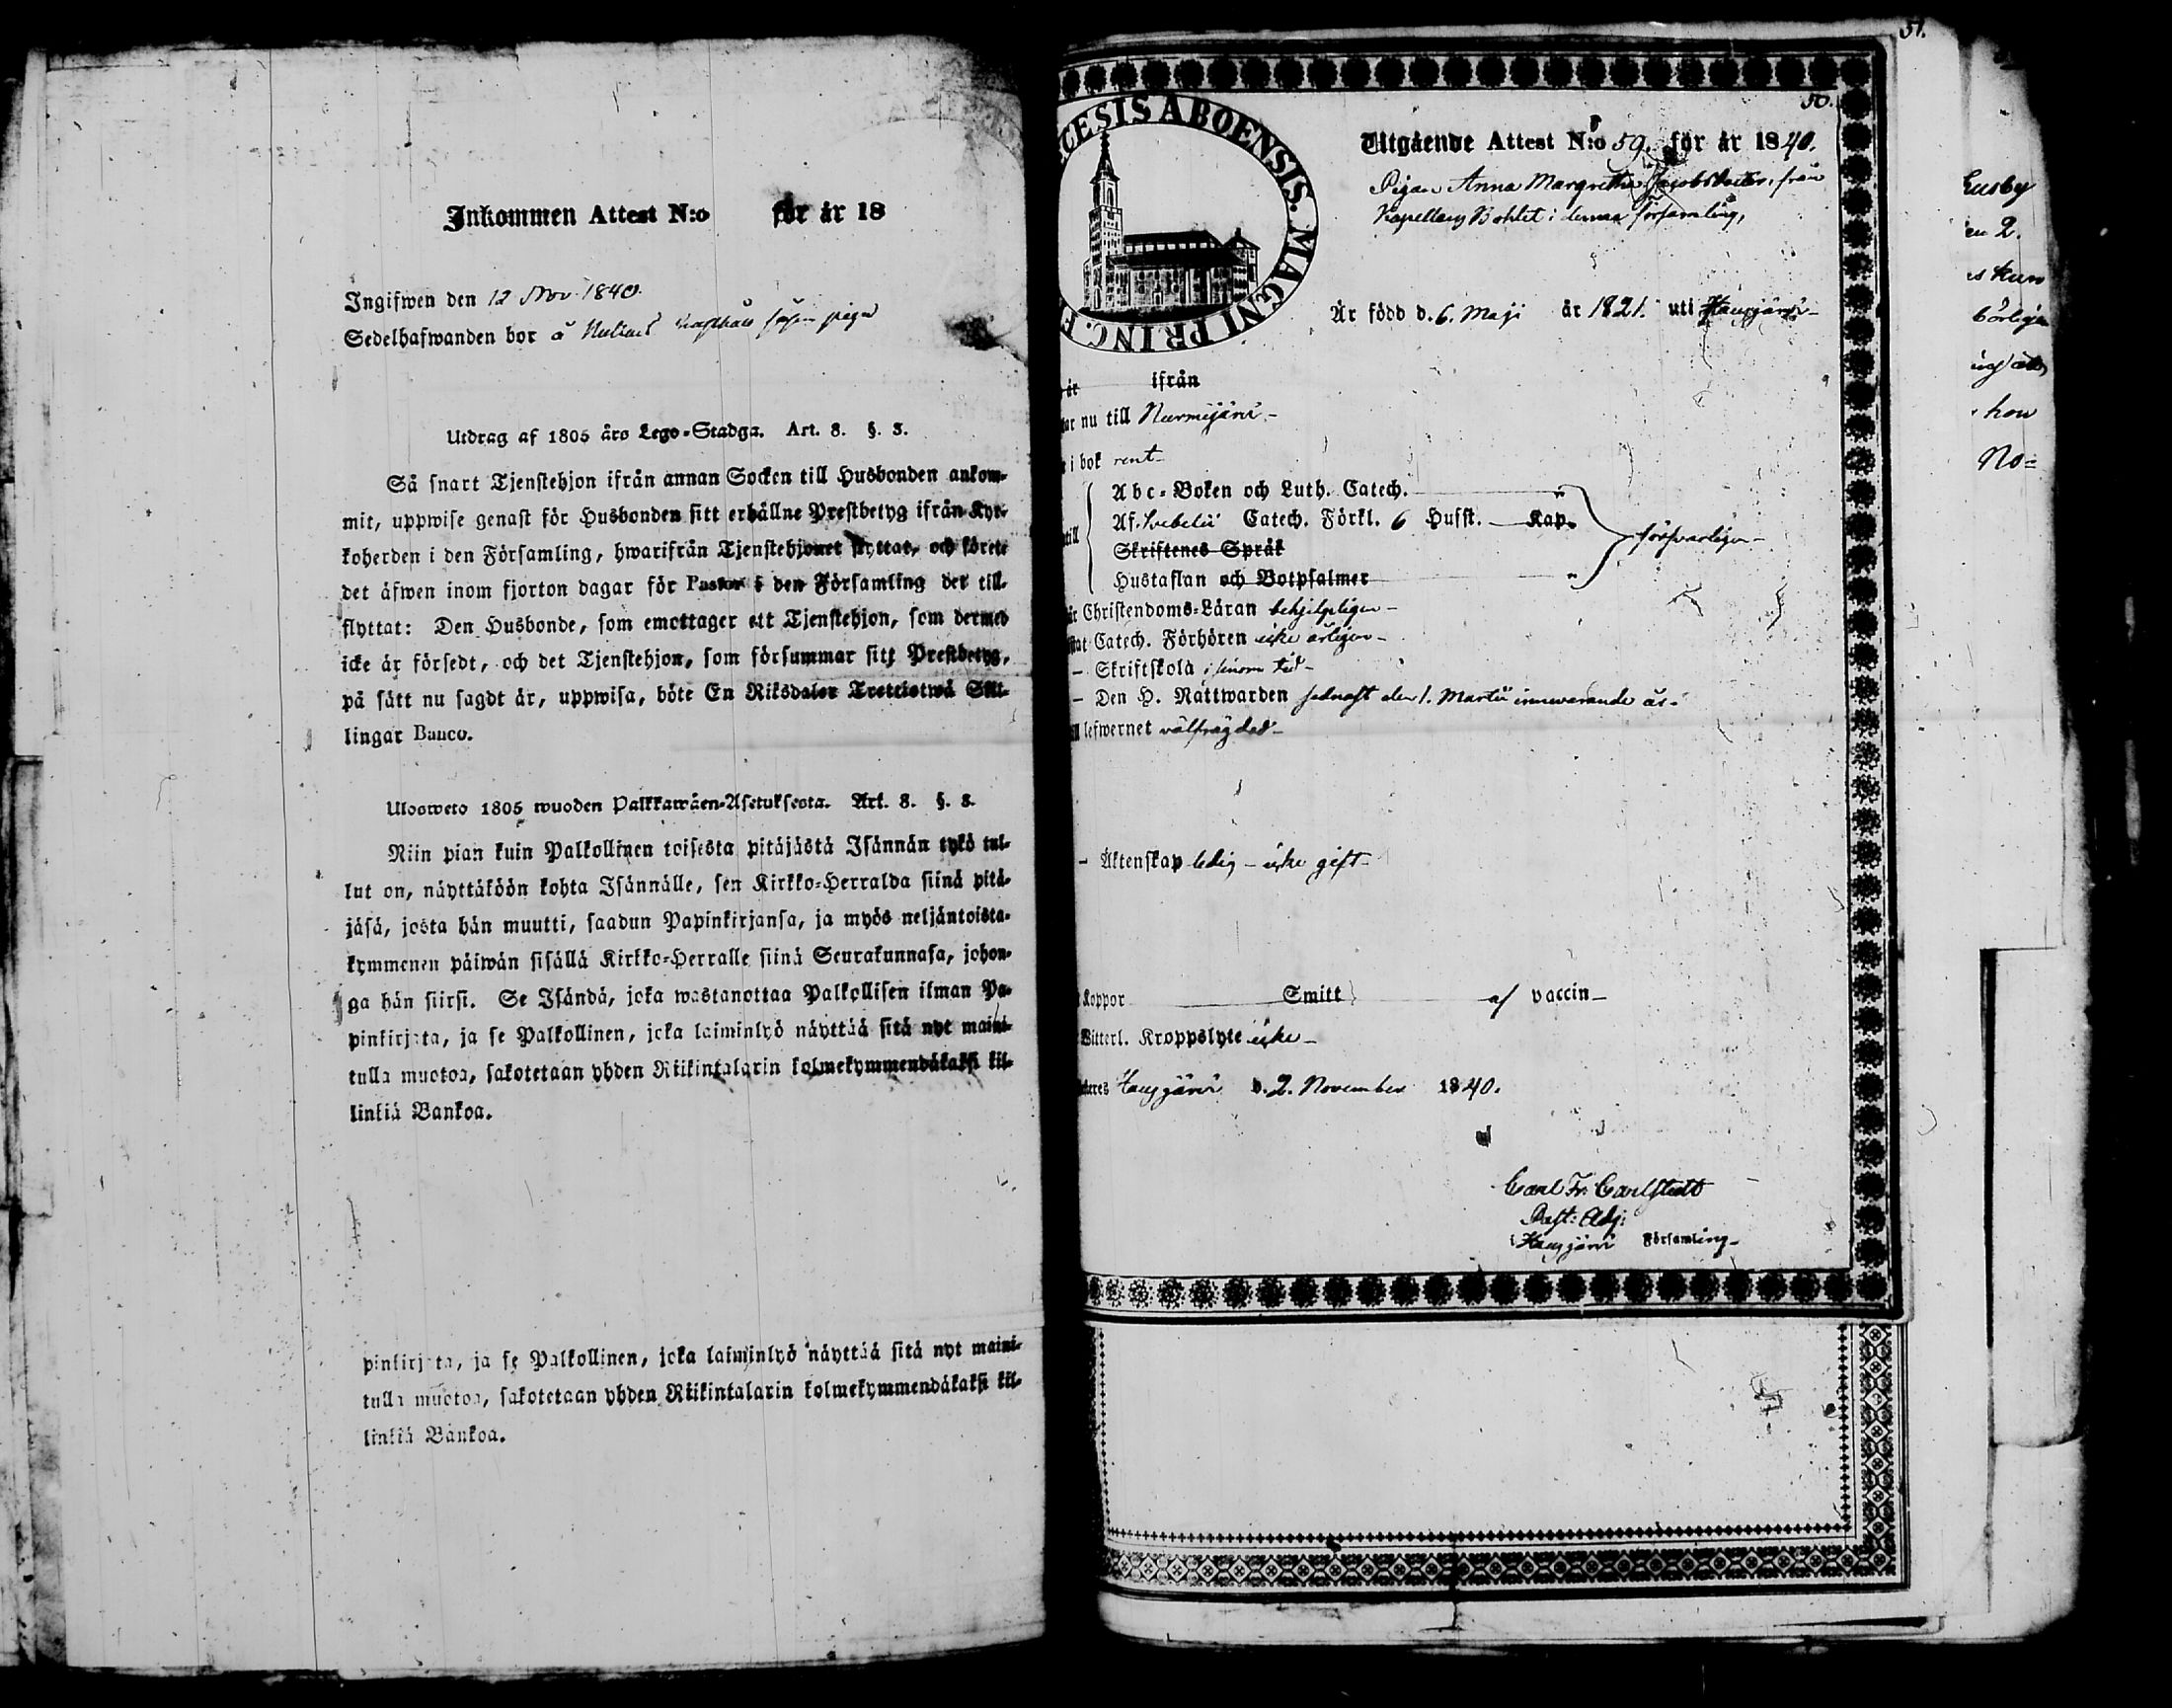 Inkommen Attest N:o för år 18
Ingifwen den 12 Nov. 1840.
Sedelhafwanden bor å piga
Utdrag af 1805 års Lego-Stadga. Art. 8. §. 3.
Så snart Tjenstehjon ifrån annan Socken till Husbonden ankom-
mit, uppwise genast för Husbonden sitt erhållne Prestbetyg ifrån Kyr-
koherden i den Församling, hwarifrån Tjenstehjonet flyttat, och förete
det äfwen inom fjorton dagar för Pastor i den Församling det till-
flyttat: Den Husbonde, som emottager ett Tjenstehjon, som dermed
icke är försedt, och det Tjenstehjon, som försummar sitt Prestbetyg,
på sätt nu sagdt är, uppwisa, böte En Riksdaler Trettiotwå Skil-
lingar Banco.
Ulosweto 1805 wuoden Palkkawäen-Asetuksesta. Art. 8. §. 3.
Niin pian kuin Palkollinen toisesta pitäjästä Isännän tykö tul-
lut on, näyttäköön kohta Isännälle, sen Kirkko-Herralda siinä pitä-
jäsä, josta hän muutti, saadun Papinkirjansa, ja myös neljäntoista-
kymmenen päiwän sisällä Kirkko-Herralle siinä Seurakunnasa, johon-
ga hän siirsi. Se Isändä, joka wastanottaa Palkollisen ilman Pa-
pinkirjata, ja se Palkollinen, joka laiminlyö näyttää sitä nyt maini-
tulla muotoa, sakotetaan yhden Riikintalarin kolmekymmendäkaksi kil-
linkiä Bankoa.
pinkirjata, ja se Palkollinen, joka laiminlyö näyttää sitä nyt maini-
tulla muotoa, sakotetaan yhden Riikintalarin kolmekymmendäkaksi kil-
linkiä Bankoa.
51.
50.
CESIS ABOENSIS. MAGNI PRINC. F
Utgående Attest N:o 59. för år 1840.
Pigan Anna Margretha Jacobsdotter, från
Kapellans Bohlet i denna församling,
Är född d. 6. Maji år 1821. uti Hausjärvi
år ifrån
ar nu till Nurmijärvi
i bok rent
Abc-Boken och Luth. Catech. "
till Af. Svebelii Catech. Förkl. 6 Hufst. Kap. försvarligen
Skriftenes Språk
Hustaflan och Botpsalmer "
år Christendoms-Läran behjelpligen
tat Catech. Förhören icke årligen
- Skriftskola i sinom tid
- Den H. Nattwarden sednast den 1. Martii innevarande år.
ll lefwernet välfrägdad
- Äktenskap ledig - icke gift
Koppor Smitt af vaccin
Witterl. Kroppslyte icke
teres Hausjärvi d. 2. November 1840.
Carl Fr. Carlstedt
Past: Adj:
i Hausjärvi Församling
Husby
en 2.
s kun
börligen
hon
No=